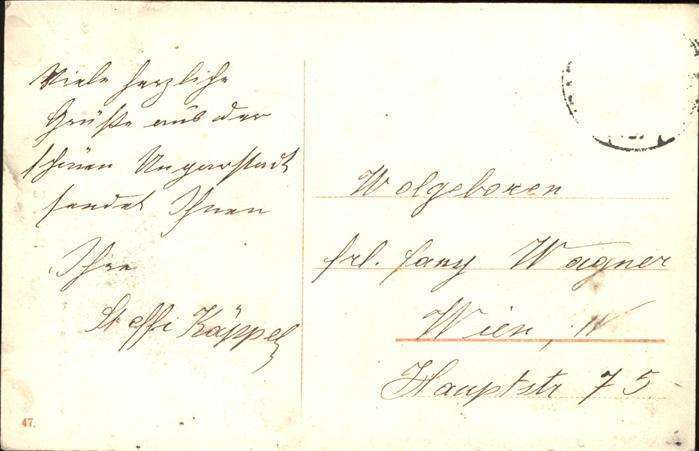 Viele herzliche
Grüße aus der
schönen Ungarstadt
sendet Ihnen
Ihre
Steffi Käppel
47.
Wolgeboren
Frl. Fany Wagner
Wien, IV
Hauptstr 75